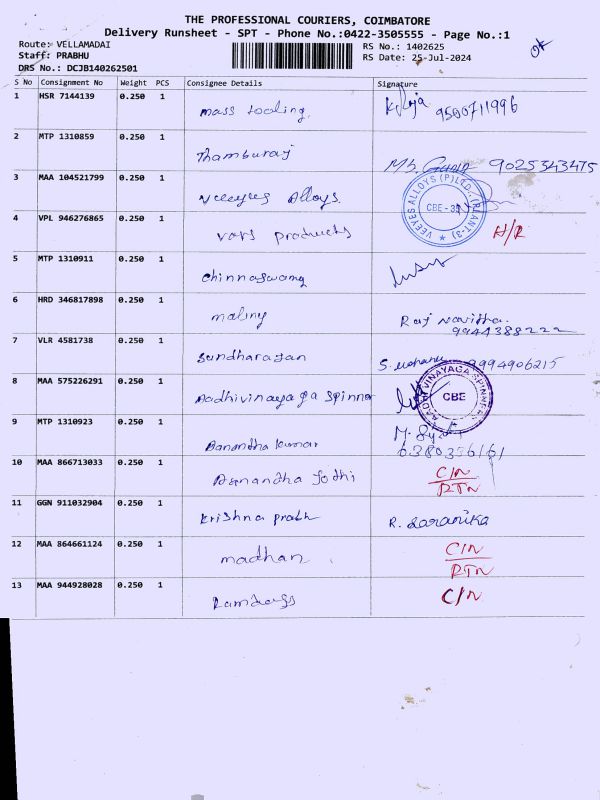 THE PROFESSIONAL COURIERS, COIMBATORE
Delivery Runsheet - SPT - Phone No.:0422-3505555 - Page No.:1
Route: VELLAMADAI
RS No.: 1402625
OK
Staff: PRABHU
RS Date: 25-Jul-2024
DRS No.: DCJB140262501
S No Consignment No Weight PCS Consignee Details Signature
1 HSR 7144139 0.250 1 mass tooling. 9500711996
2 MTP 1310859 0.250 1 Thamburaj 9025343475
3 MAA 104521799 0.250 1 Veeyes Alloys. VEEYES ALLOYS (P) LTD., (PLANT-3) CBE - 35
4 VPL 946276865 0.250 1 products H/R
5 MTP 1310911 0.250 1 chinnaswamy
6 HRD 346817898 0.250 1 Raj Navitha. 9944388222
7 VLR 4581738 0.250 1 Sundharajan 9994906215
8 MAA 575226291 0.250 1 Aadhivinayaga spinner AADHI VINAYAGA SPINNERS CBE
9 MTP 1310923 0.250 1 Aanandha kumar 6380356161
10 MAA 866713033 0.250 1 Aanandha Jothi C/N RTN
11 GGN 911032904 0.250 1 krishna R. Saranika
12 MAA 864661124 0.250 1 madhan C/N RTN
13 MAA 944928028 0.250 1 C/N